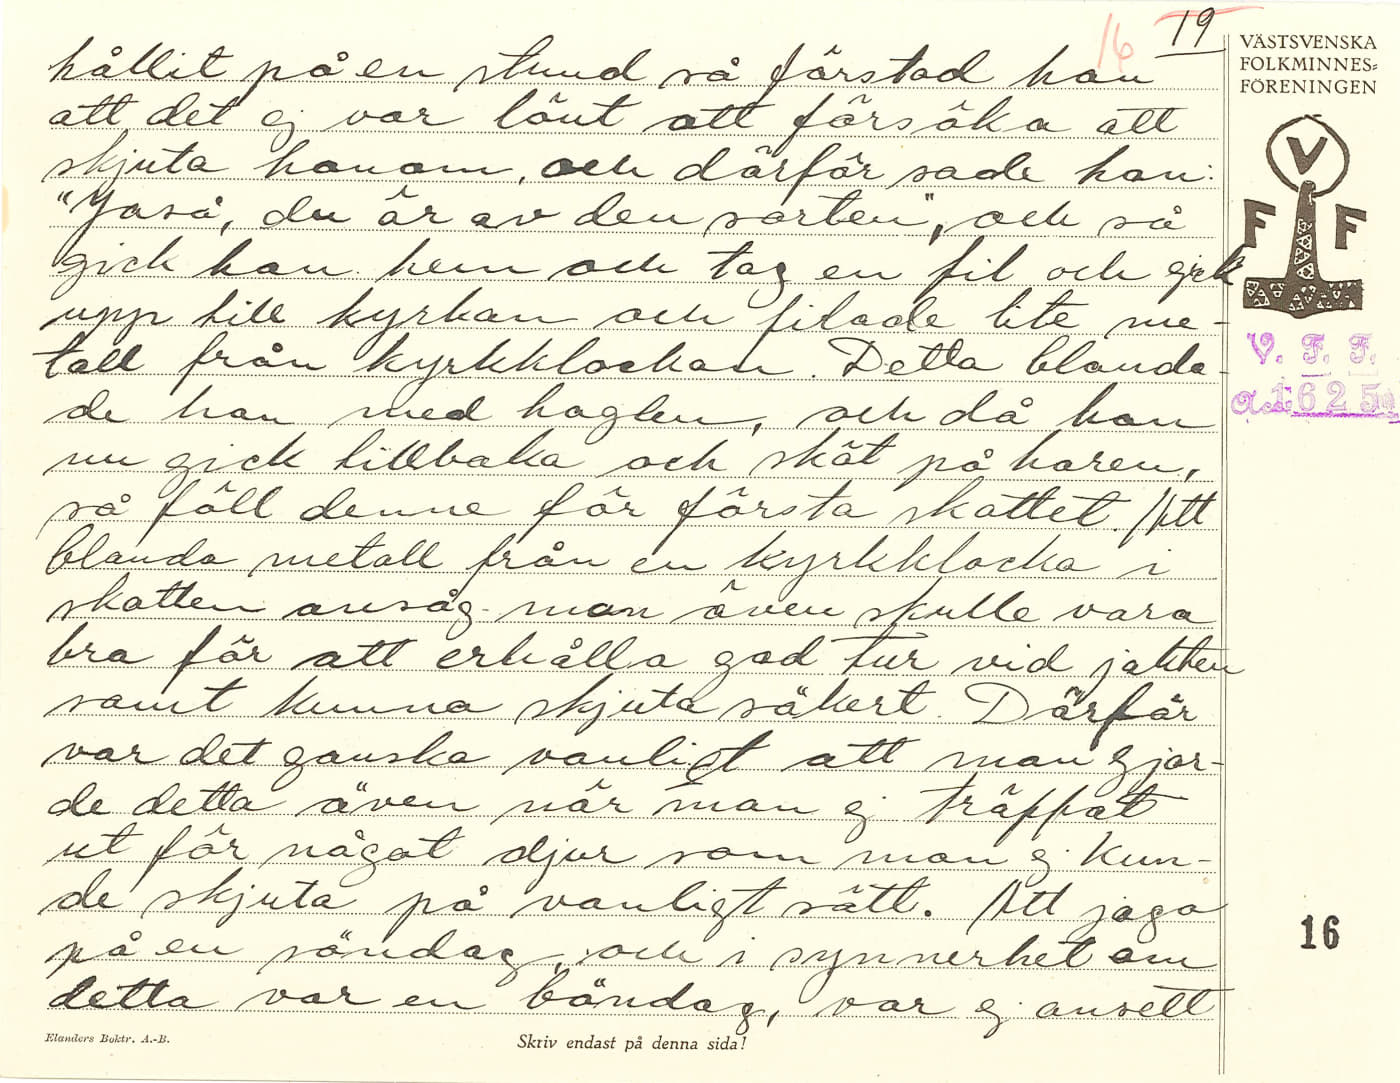 16 19
VÄSTSVENSKA
FOLKMINNES=
FÖRENINGEN
V
F F
V. F. F.
a.1:625
hållit på en stund så förstod han
att det ej var lönt att försöka att
skjuta honom, och därför sade han:
"Jaså, du är av den sorten", och så
gick han hem och tog en fil och gick
upp till kyrkan och filade lite me-
tall från kyrkklockan. Detta blanda-
de han med haglen, och då han
nu gick tillbaka och sköt på haren,
så föll denne för första skottet. Att
blanda metall från en kyrkklocka i
skotten ansåg man även skulle vara
bra för att erhålla god tur vid jakten
samt kunna skjuta säkert. Därför
var det ganska vanligt att man gjor-
de detta även när man ej träffat
ut för något djur som man ej kun-
de skjuta på vanligt sätt. Att jaga
på en söndag, och i synnerhet om
detta var en böndag, var ej ansett
16
Elanders Boktr. A.-B.
Skriv endast på denna sida!